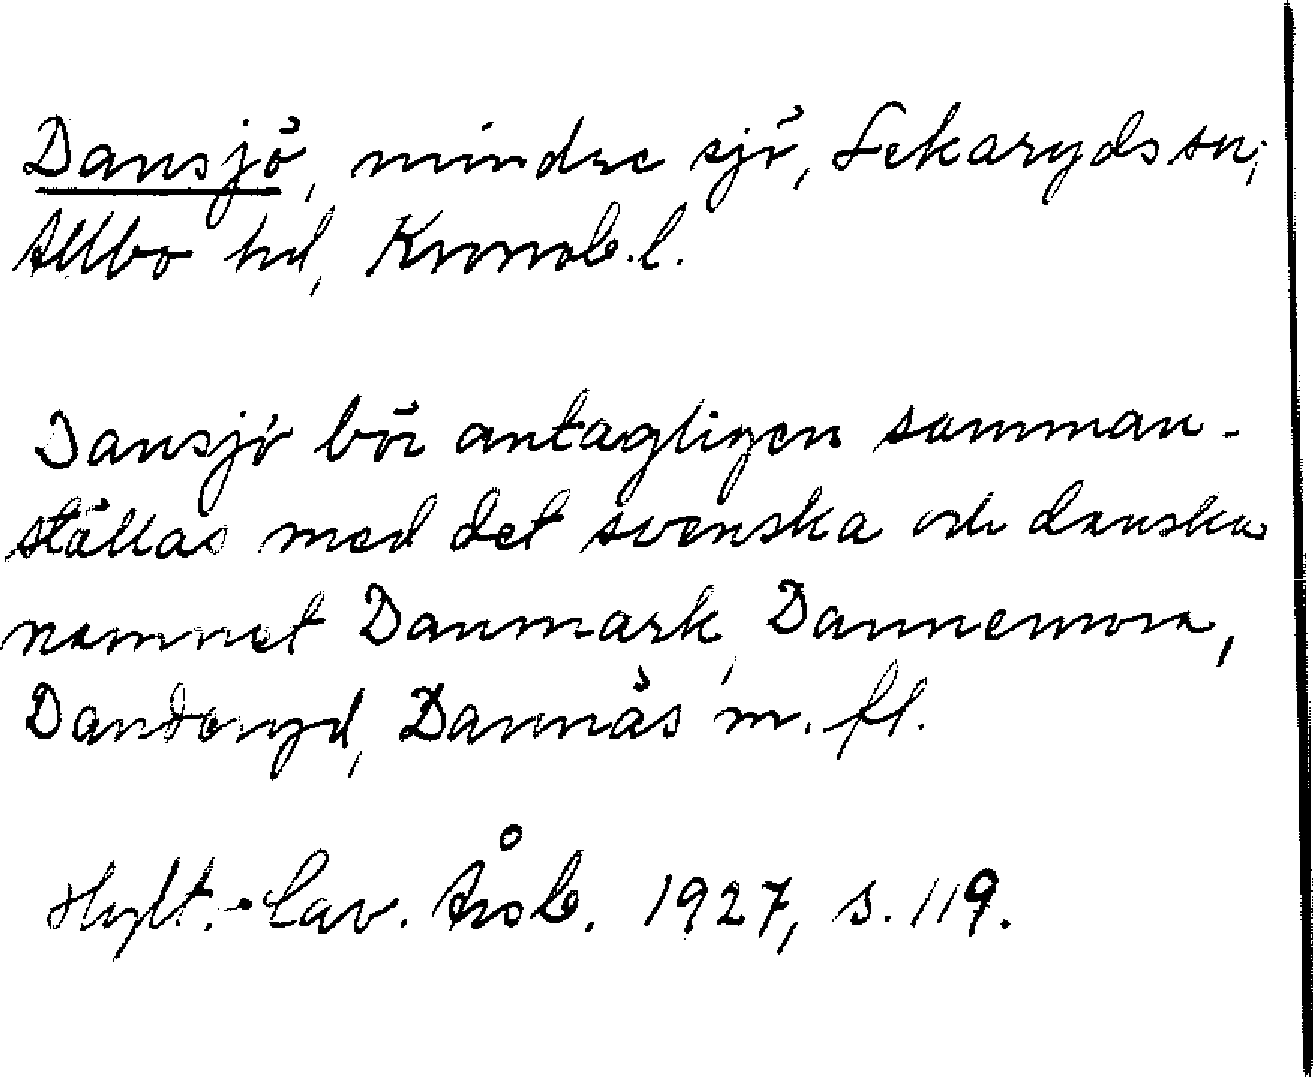 Dansjö, mindre sjö, Lekaryds sn;
Allbo hd, Kronob. l.
Dansjö bör antagligen samman-
ställas med det svenska och danska
namnet Danmark, Dannemora,
Dandoryd, Dannäs m. fl.
Hylt.-Cav. Årsb. 1927, s. 119.